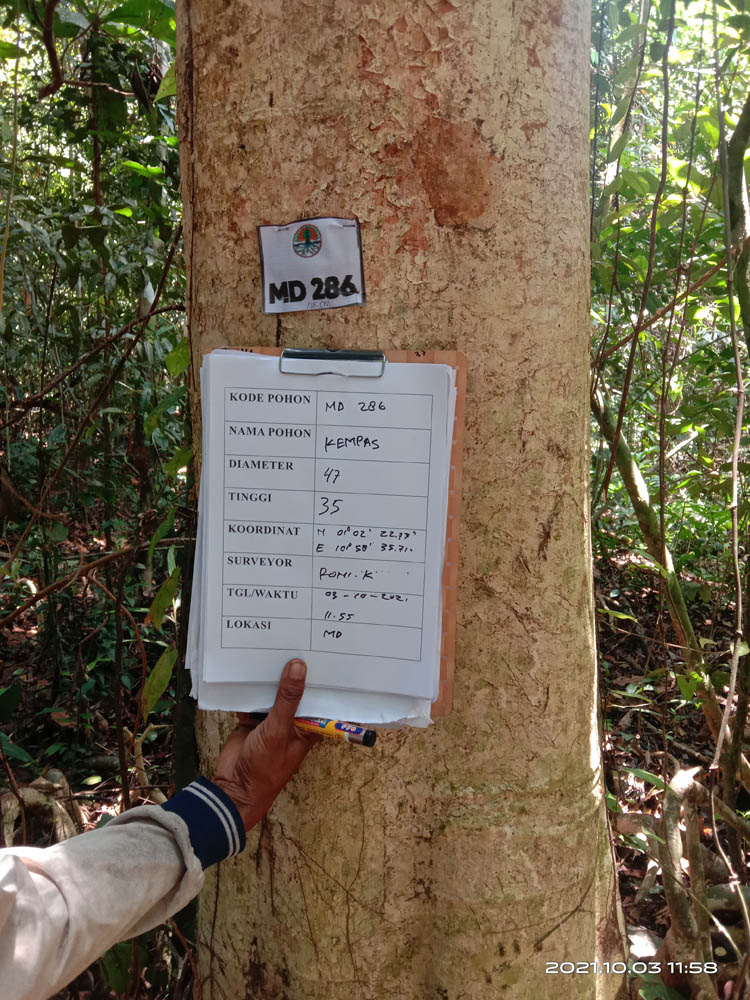 MD 286
KODE POHON MD 286
NAMA POHON KEMPAS
DIAMETER 47
TINGGI 35
KOORDINAT N 01° 02' 22.77"
E 101° 58' 35.71"
SURVEYOR ROMI. K
TGL/WAKTU 03-10-2021
11.55
LOKASI MD
2021.10.03 11:58